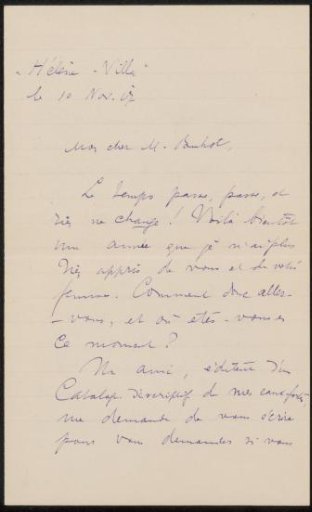 "Hélène-Villa"
le 10 Nov. 07
Mon cher M.
Le temps passe, passe, et
rien ne change! Voilà bientôt
une année que je n'ai plus
rien appris de vous et de votre
femme. Comment donc allez-
-vous, et où êtes-vous en
ce moment?
Un ami, éditeur d'un
Catalogue descriptif de mes eaux fortes
me demande de vous écrire
pour vous demander si vous